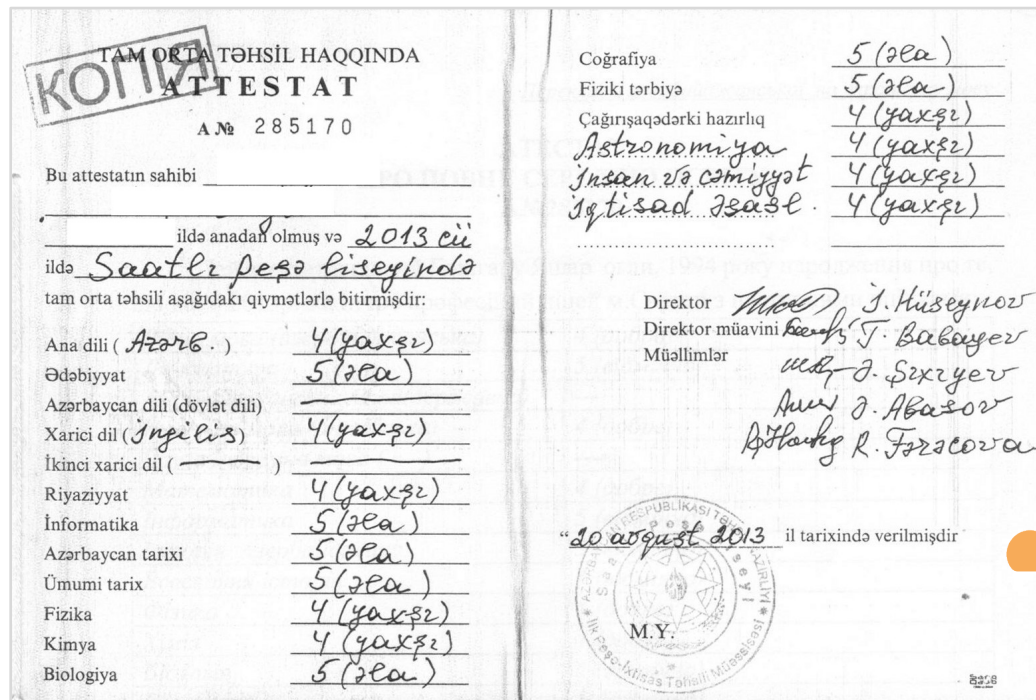 КОПИЯ
TAM ORTA TƏHSİL HAQQINDA
ATTESTAT
A № 285170
Bu attestatın sahibi
ildə anadan olmuş və 2013 cü
ildə Saatlı Peşə liseyində
tam orta təhsili aşağıdakı qiymətlərlə bitirmişdir:
Ana dili ( Azərb ) 4 (yaxşı)
Ədəbiyyat 5 (əla)
Azərbaycan dili (dövlət dili) —
Xarici dil (İngilis) 4 (yaxşı)
İkinci xarici dil ( — ) —
Riyaziyyat 4 (yaxşı)
İnformatika 5 (əla)
Azərbaycan tarixi 5 (əla)
Ümumi tarix 5 (əla)
Fizika 4 (yaxşı)
Kimya 4 (yaxşı)
Biologiya 5 (əla)
Coğrafiya 5 (əla)
Fiziki tərbiyə 5 (əla)
Çağırışaqədərki hazırlıq 4 (yaxşı)
Astronomiya 4 (yaxşı)
İnsan və cəmiyyət 4 (yaxşı)
İqtisad əsasl. 4 (yaxşı)
Direktor İ. Hüseynov
Direktor müavini T. Babayev
Müəllimlər Ə. Şıxıyev
Ə. Abasov
R. Fərəcova
"20 avqust 2013 il tarixində verilmişdir
M.Y.